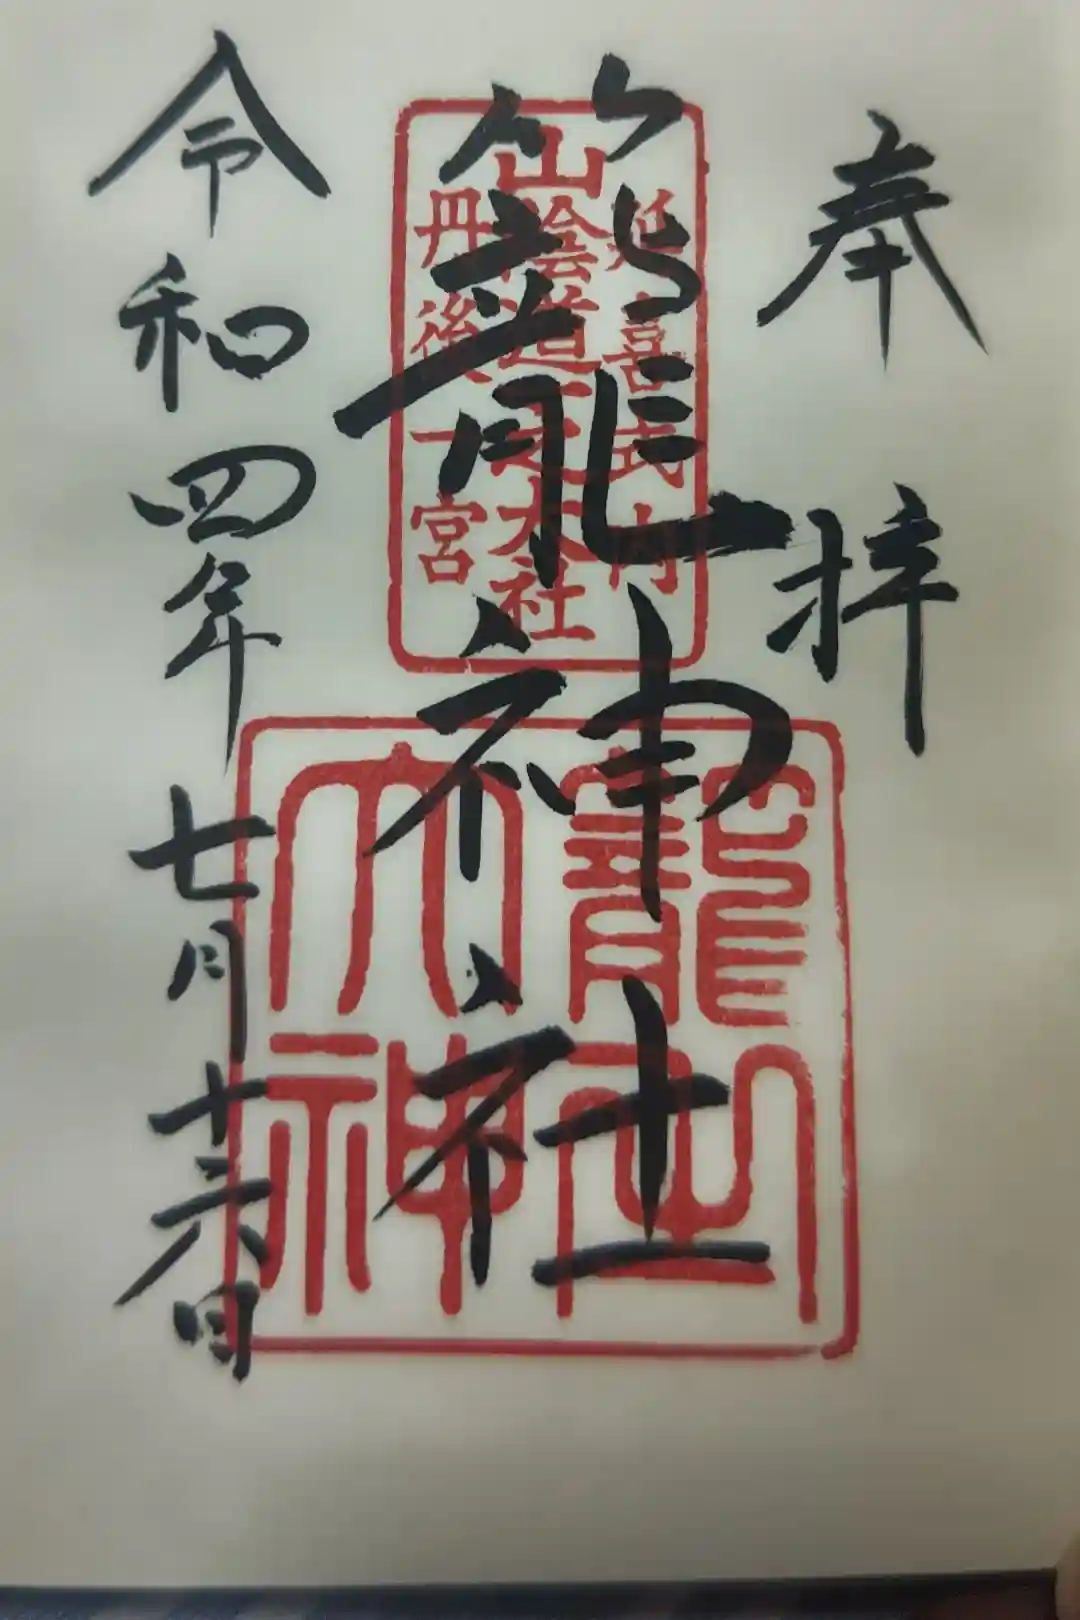 奉拝
延喜式内
山陰道一之大社
丹後一宮
籠神社
籠之大神
令和四年七月十六日